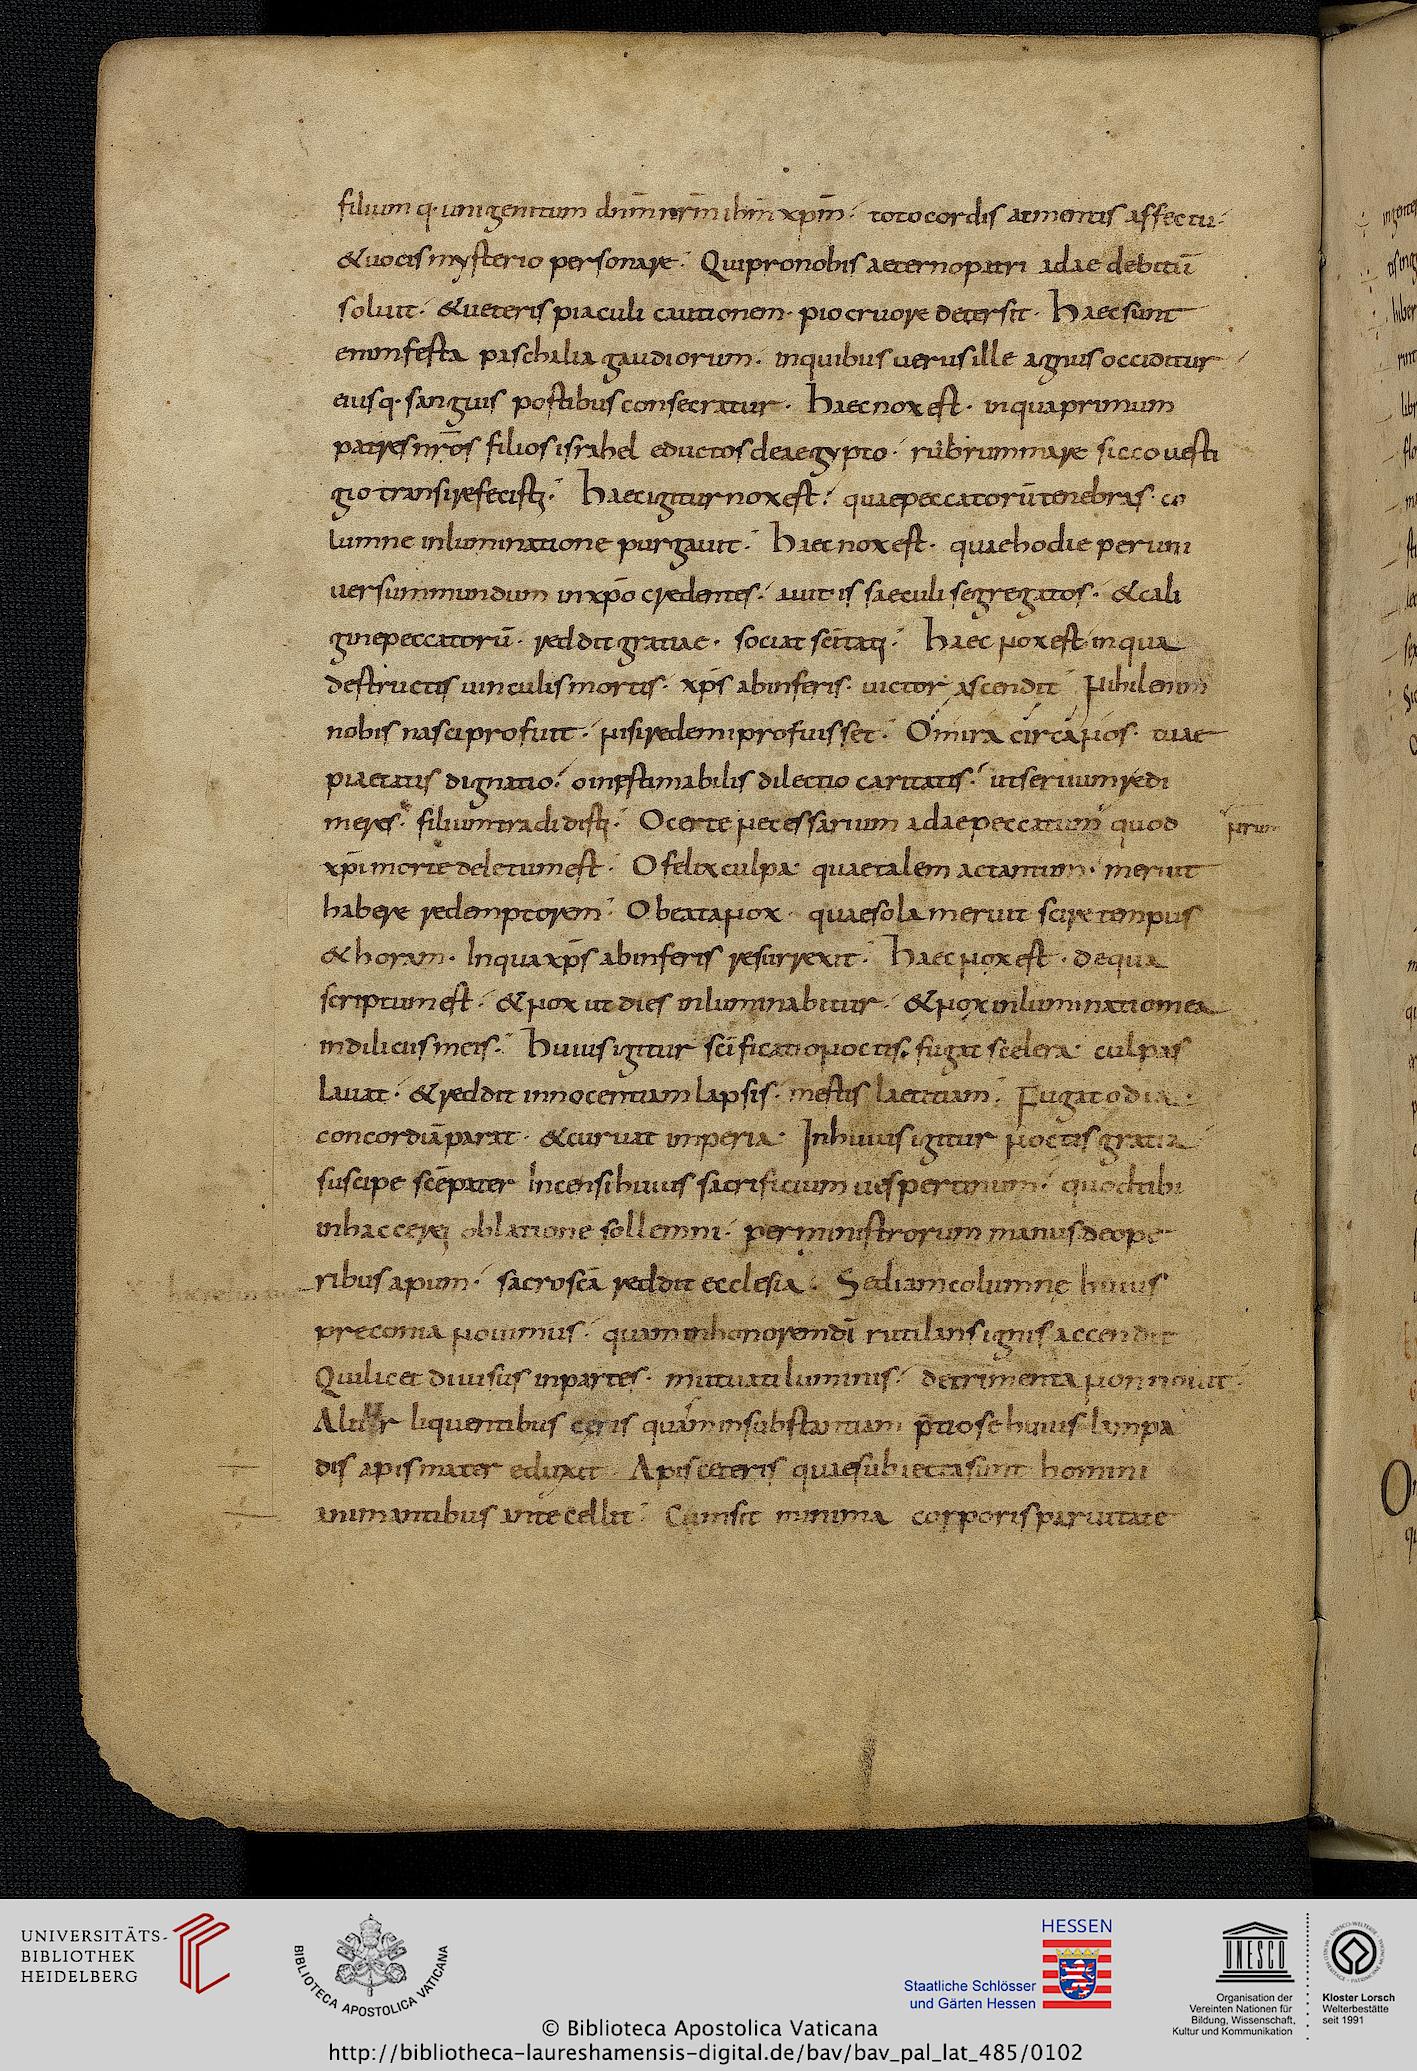 filium q· unigenitum dnm̄ nr̄m ihm̄ xpm̄· toto cordis ac mentis affectu·
& uocis mysterio personare· Qui pro nobis aeterno patri adae debitū
soluit· & ueteris piaculi cautionem· pio cruore detersit· Haec sunt
enim festa paschalia gaudiorum· in quibus uerus ille agnus occiditur
eiusq· sanguis postibus consecratur· Haec nox est· in qua primum
patres nr̄os filios israhel eductos de aegypto· rubrum mare sicco uesti
gio transire fecisti· Haec igitur nox est· quae peccatorū tenebras· co
lumne inluminatione purgauit· Haec nox est· quae hodie per uni
uersum mundum in xpō credentes· a uitiis saeculi segregatos· & cali
gine peccatorū· reddit gratiae· sociat scītati· Haec nox est in qua
destructis uinculis mortis· xps̄ ab inferis· uictor ascendit Nihil enim
nobis nasci profuit· nisi redemi profuisset· O mira circa nos· tuae
piaetatis dignatio· o inestimabilis dilectio caritatis· ut seruum redi
meres· filium tradidisti· O certe necessarium adae peccatum quod
xpī morte deletum est· O felix culpa· quae talem ac tantum· meruit
habere redemptorem· O beata nox· quae sola meruit scire tempus
& horam· In qua xps̄ ab inferis resurrexit· Haec nox est· de qua
scriptum est· & nox ut dies inluminabitur· & nox inluminatio mea
in diliciis meis· Huius igitur scīficatio noctis· fugat scelera· culpas
lauat· & reddit innocentiam lapsis· mestis laetitiam· Fugat odia·
concordiā parat· & curuat imperia· In huius igitur noctis gratia
suscipe scē pater Incensi huius sacrificium uespertinum· quod tibi
in hac cerei oblatione sollemni· per ministrorum manus de ope
ribus apium· sacroscā reddit ecclesia· Sed iam columne huius
preconia nouimus· quam in honorem dī rutilans ignis accendit
Qui licet diuisus in partes· mutuati luminis· detrimenta non nouit·
Alitur liquentibus ceris quam in substantiam p̄tiose huius lampa
dis apis mater eduxit· Apis ceteris quae subiecta sunt homini
animantibus antecellit· Cum sit minima corporis paruitate
UNIVERSITÄTS-
BIBLIOTHEK
HEIDELBERG
BIBLIOTECA APOSTOLICA VATICANA
HESSEN
Staatliche Schlösser
und Gärten Hessen
UNESCO
Organisation der
Vereinten Nationen für
Bildung, Wissenschaft,
Kultur und Kommunikation
Kloster Lorsch
Welterbestätte
seit 1991
© Biblioteca Apostolica Vaticana
http://bibliotheca-laureshamensis-digital.de/bav/bav_pal_lat_485/0102